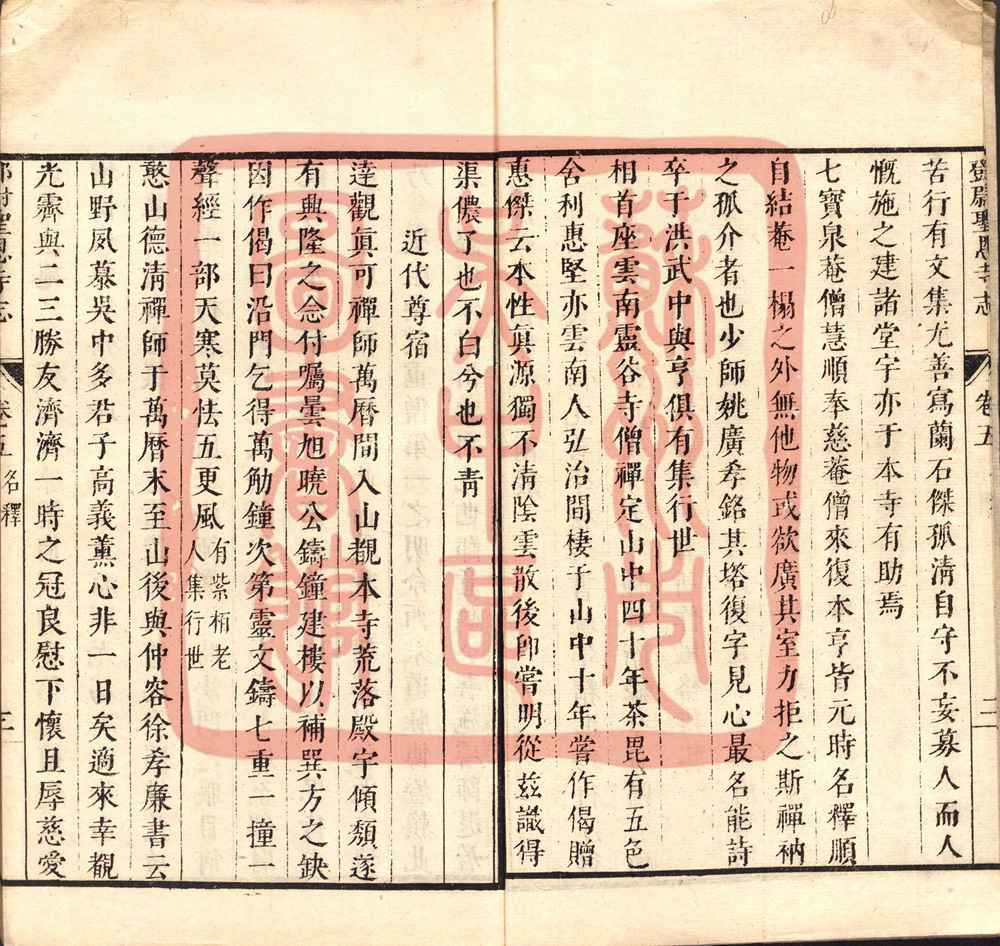 鄧尉聖恩寺志 卷五 二
苦行有文集尤善寫蘭石傑孤淸自守不妄募人而人
慨施之建諸堂宇亦于本寺有助焉
七寶泉菴僧慧順奉慈菴僧來復本亨皆元時名釋順
自結菴一榻之外無他物或欲廣其室力拒之斯禪衲
之孤介者也少師姚廣孝銘其塔復字見心最名能詩
卒于洪武中與亨俱有集行世
相首座雲南靈谷寺僧禪定山中四十年茶毘有五色
舍利惠堅亦雲南人弘治間棲于山中十年嘗作偈贈
惠傑云本性眞源獨不淸陰雲散後卽嘗明從茲識得
渠儂了也不白兮也不靑
近代尊宿
達觀眞可禪師萬曆間入山覩本寺荒落殿宇傾頽遂
有興隆之念付囑曇旭曉公鑄鐘建樓以補巽方之缺
因作偈曰沿門乞得萬觔鐘次第靈文鑄七重一撞一
聲經一部天寒莫怯五更風有紫栢老人集行世
憨山德淸禪師于萬曆末至山後與仲容徐孝廉書云
山野夙慕吳中多君子高義薰心非一日矣適來幸覩
光霽與二三勝友濟濟一時之冠良慰下懷且辱慈愛
鄧尉聖恩寺志 卷五 名釋 三